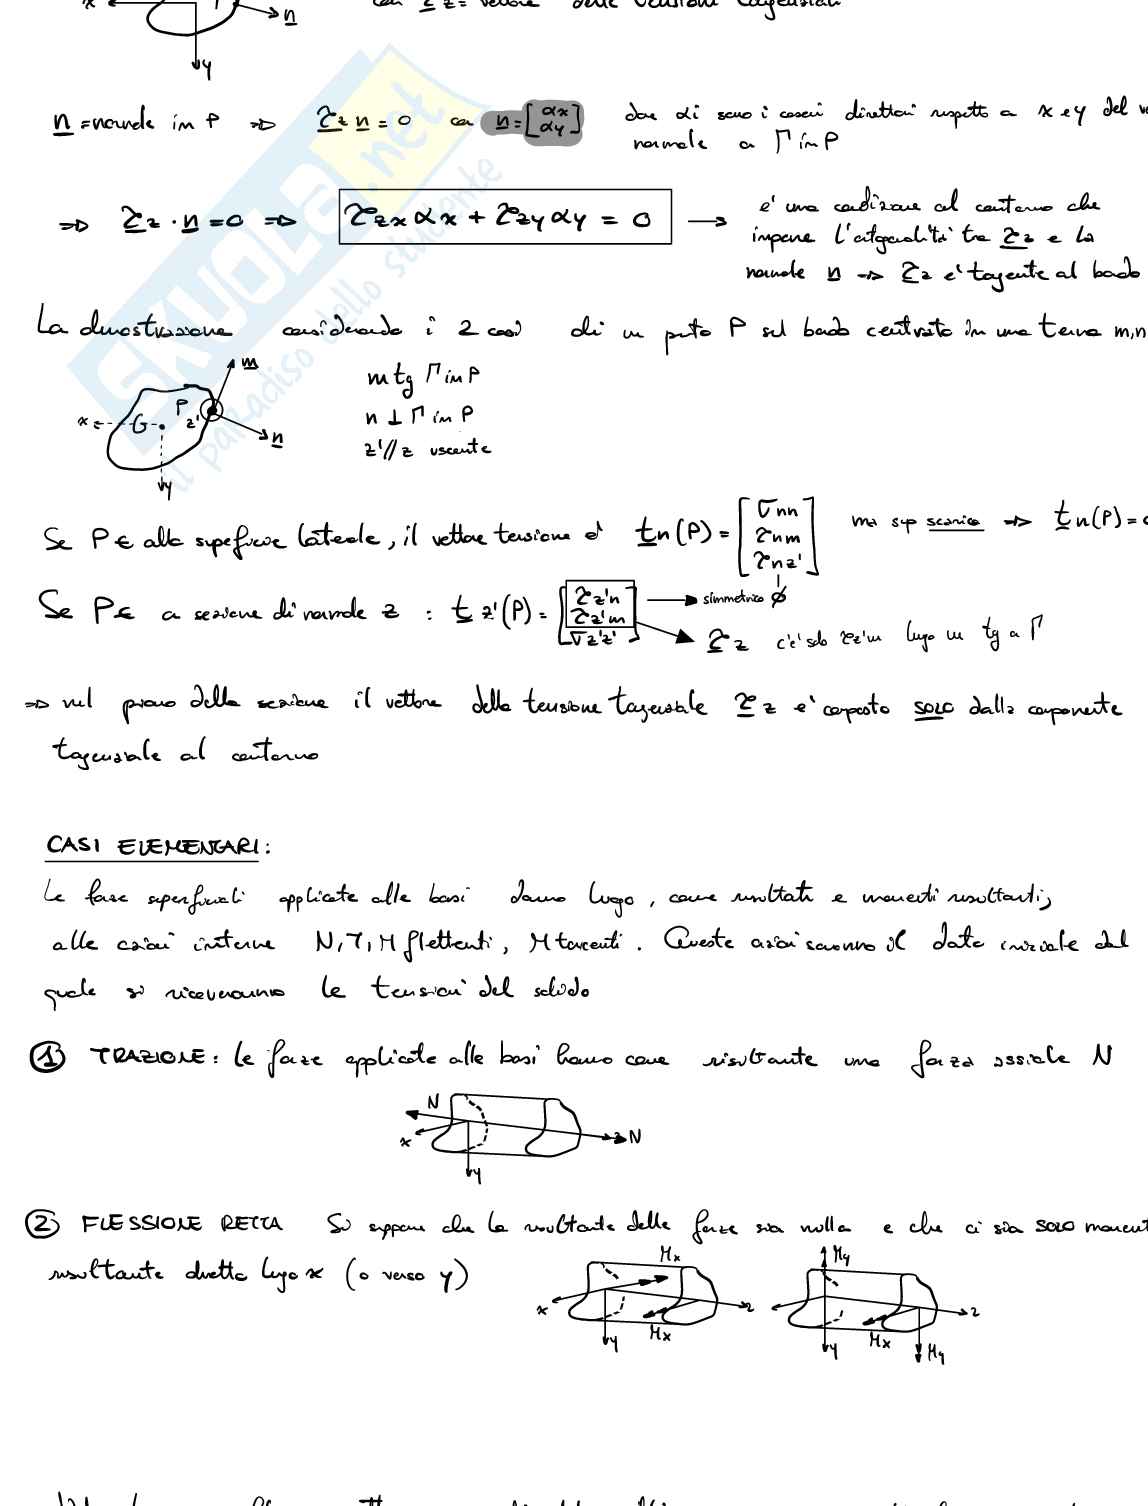 con τz = vettore delle tensioni tangenziali
x n
y
n = normale in P ⇒ τz n = 0 con n = [αx αy] dove αi sono i coseni direttori rispetto a x e y del
normale a Γ in P
⇒ τz · n = 0 ⇒ τzx αx + τzy αy = 0 → e' una condizione al contorno che
impone l'ortogonalità tra τz e la
normale n ⇒ τz e' tangente al bordo
La dimostrazione considerando i 2 casi di un punto P sul bordo centrato in una terna m,n
m
x G P z' n
y
m tg Γ in P
n ⊥ Γ in P
z' // z uscente
Se P ∈ alla superficie laterale, il vettore tensione è tn(P) = [σnn τnm τnz'] ma sup scarica ⇒ tn(P) =
Se P ∈ a sezione di normale z : t z'(P) = [τz'n τz'm σz'z'] → simmetrico ∅
τz c'e' solo τz'm lungo m tg a Γ
⇒ nel piano della sezione il vettore della tensione tangenziale τz e' composto SOLO dalla componente
tangenziale al contorno
CASI ELEMENTARI:
Le forze superficiali applicate alle basi danno luogo, come risultati e momenti risultanti,
alle azioni interne N, T, M flettenti, M torcenti. Queste azioni saranno il dato iniziale dal
quale si ricaveranno le tensioni del solido
① TRAZIONE: Le forze applicate alle basi hanno come risultante una forza assiale N
N x y z N
② FLESSIONE RETTA Si suppone che la risultante delle forze sia nulla e che ci sia SOLO
risultante diretto lungo x (o verso y)
Mx x y z Mx
My y z Mx My
SKUOLA.net
il paradiso dello studente